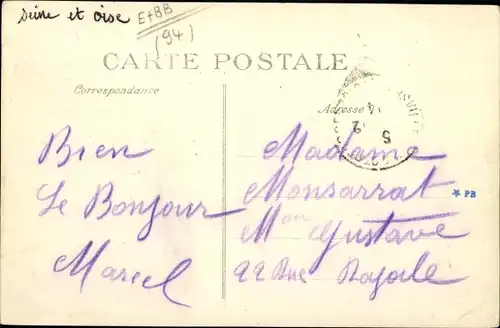 Seine et oise
E+BB
(94)
CARTE POSTALE
Correspondance
Adresse
Bien
Le Bonjour
Marcel
Madame
Monsarrat
Mon Gustave
22 Rue Royale
PB